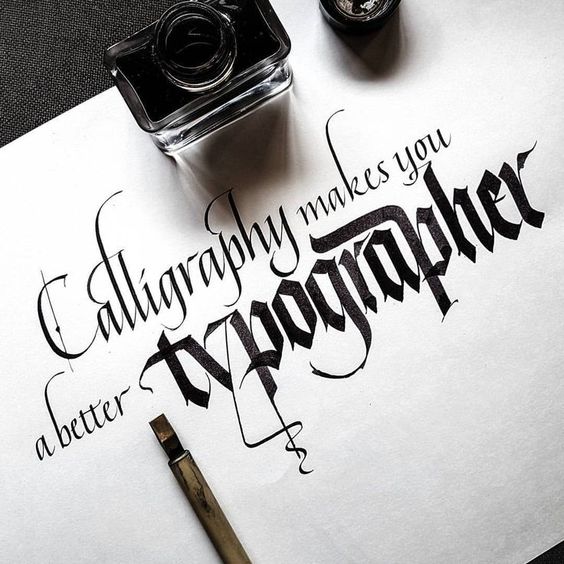 Calligraphy makes you
a better typographer